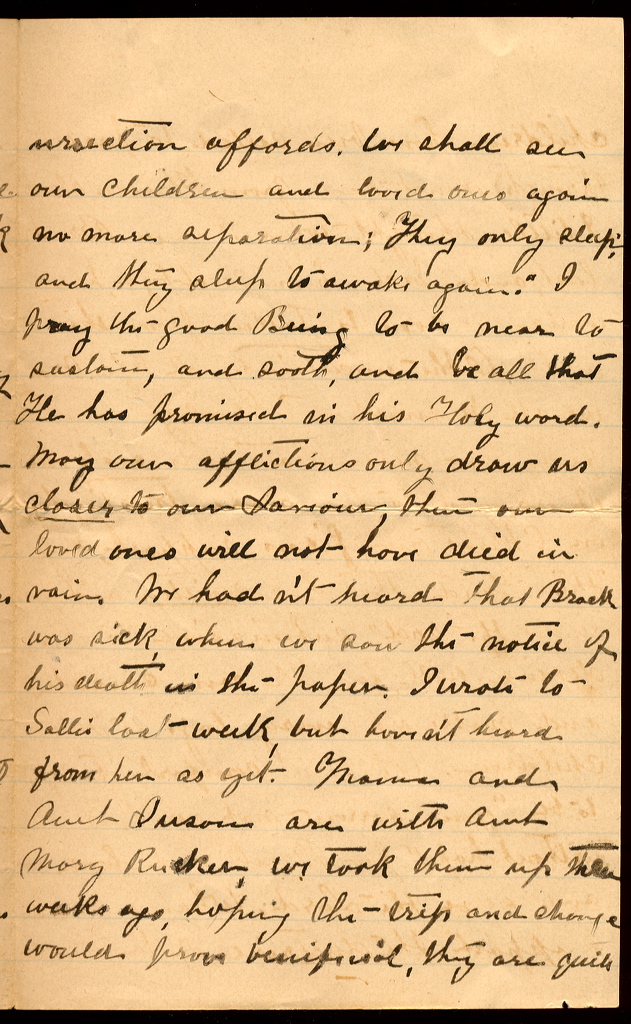 urrection affords. We shall see
our children and loved ones again
no more separation; They only sleep,
and they sleep to awake again." I
pray the good Being to be near to
sustain, and sooth, and be all that
He has promised in his Holy word.
May our afflictions only draw us
closer to our Saviour, then our
loved ones will not have died in
vain. We had n't heard that Brack
was sick, when we saw the notice of
his death in the paper. I wrote to
Sallie last week, but haven't heard
from her as yet. Mama and
Aunt Susan are with Aunt
Mary Rucker, we took them up three
weeks ago, hoping the trip and change
would prove benificial, they are quite